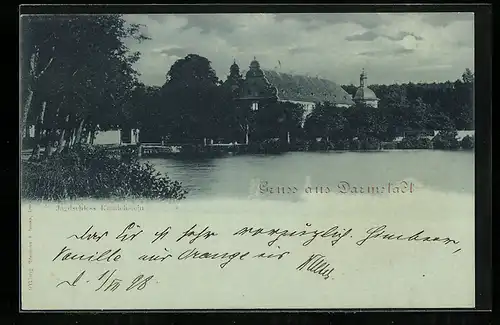 Gruss aus Darmstadt
Jagdschloss Kranichstein
Das Eis ist sehr vorzüglich, Himbeer,
Vanille und Orange eis
d. 1/VI 98